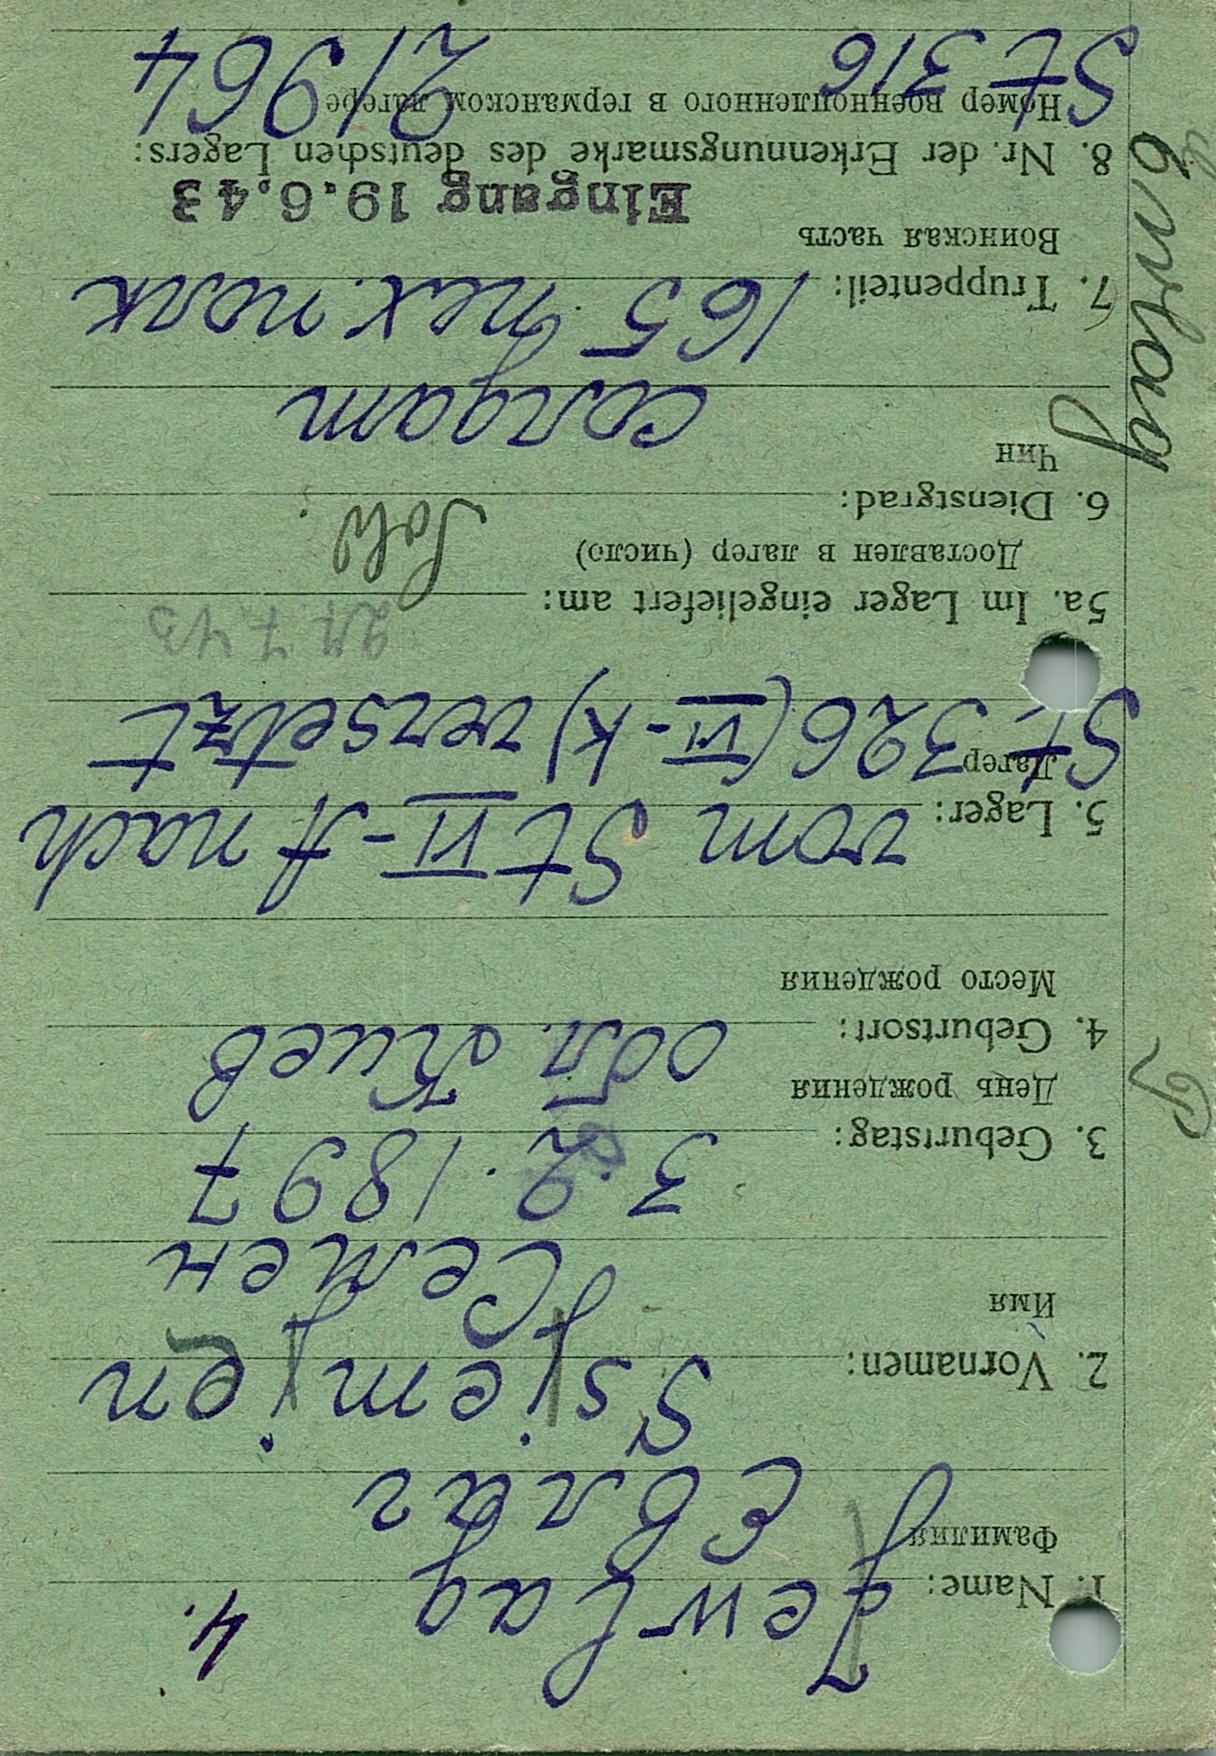 4.
1. Name: Jewlag
Фамилия Евлаг
2. Vornamen: Ssjemjen
Имя Семен
3. Geburtstag: 3.2.1897
День рождения
4. Geburtsort: обл. Киев
Место рождения
5. Lager: vom St VI-A nach
Лагер St 326 (VI-K) versetzt
27.7.43
5a. Im Lager eingeliefert am:
Доставлен в лагер (число)
Sold.
6. Dienstgrad:
Чин солдат
7. Truppenteil: 165 пех. полк
Воинская часть
Eingang 19.6.43
8. Nr. der Erkennungsmarke des deutschen Lagers:
Номер военнопленного в германском лагере
St 316 21964